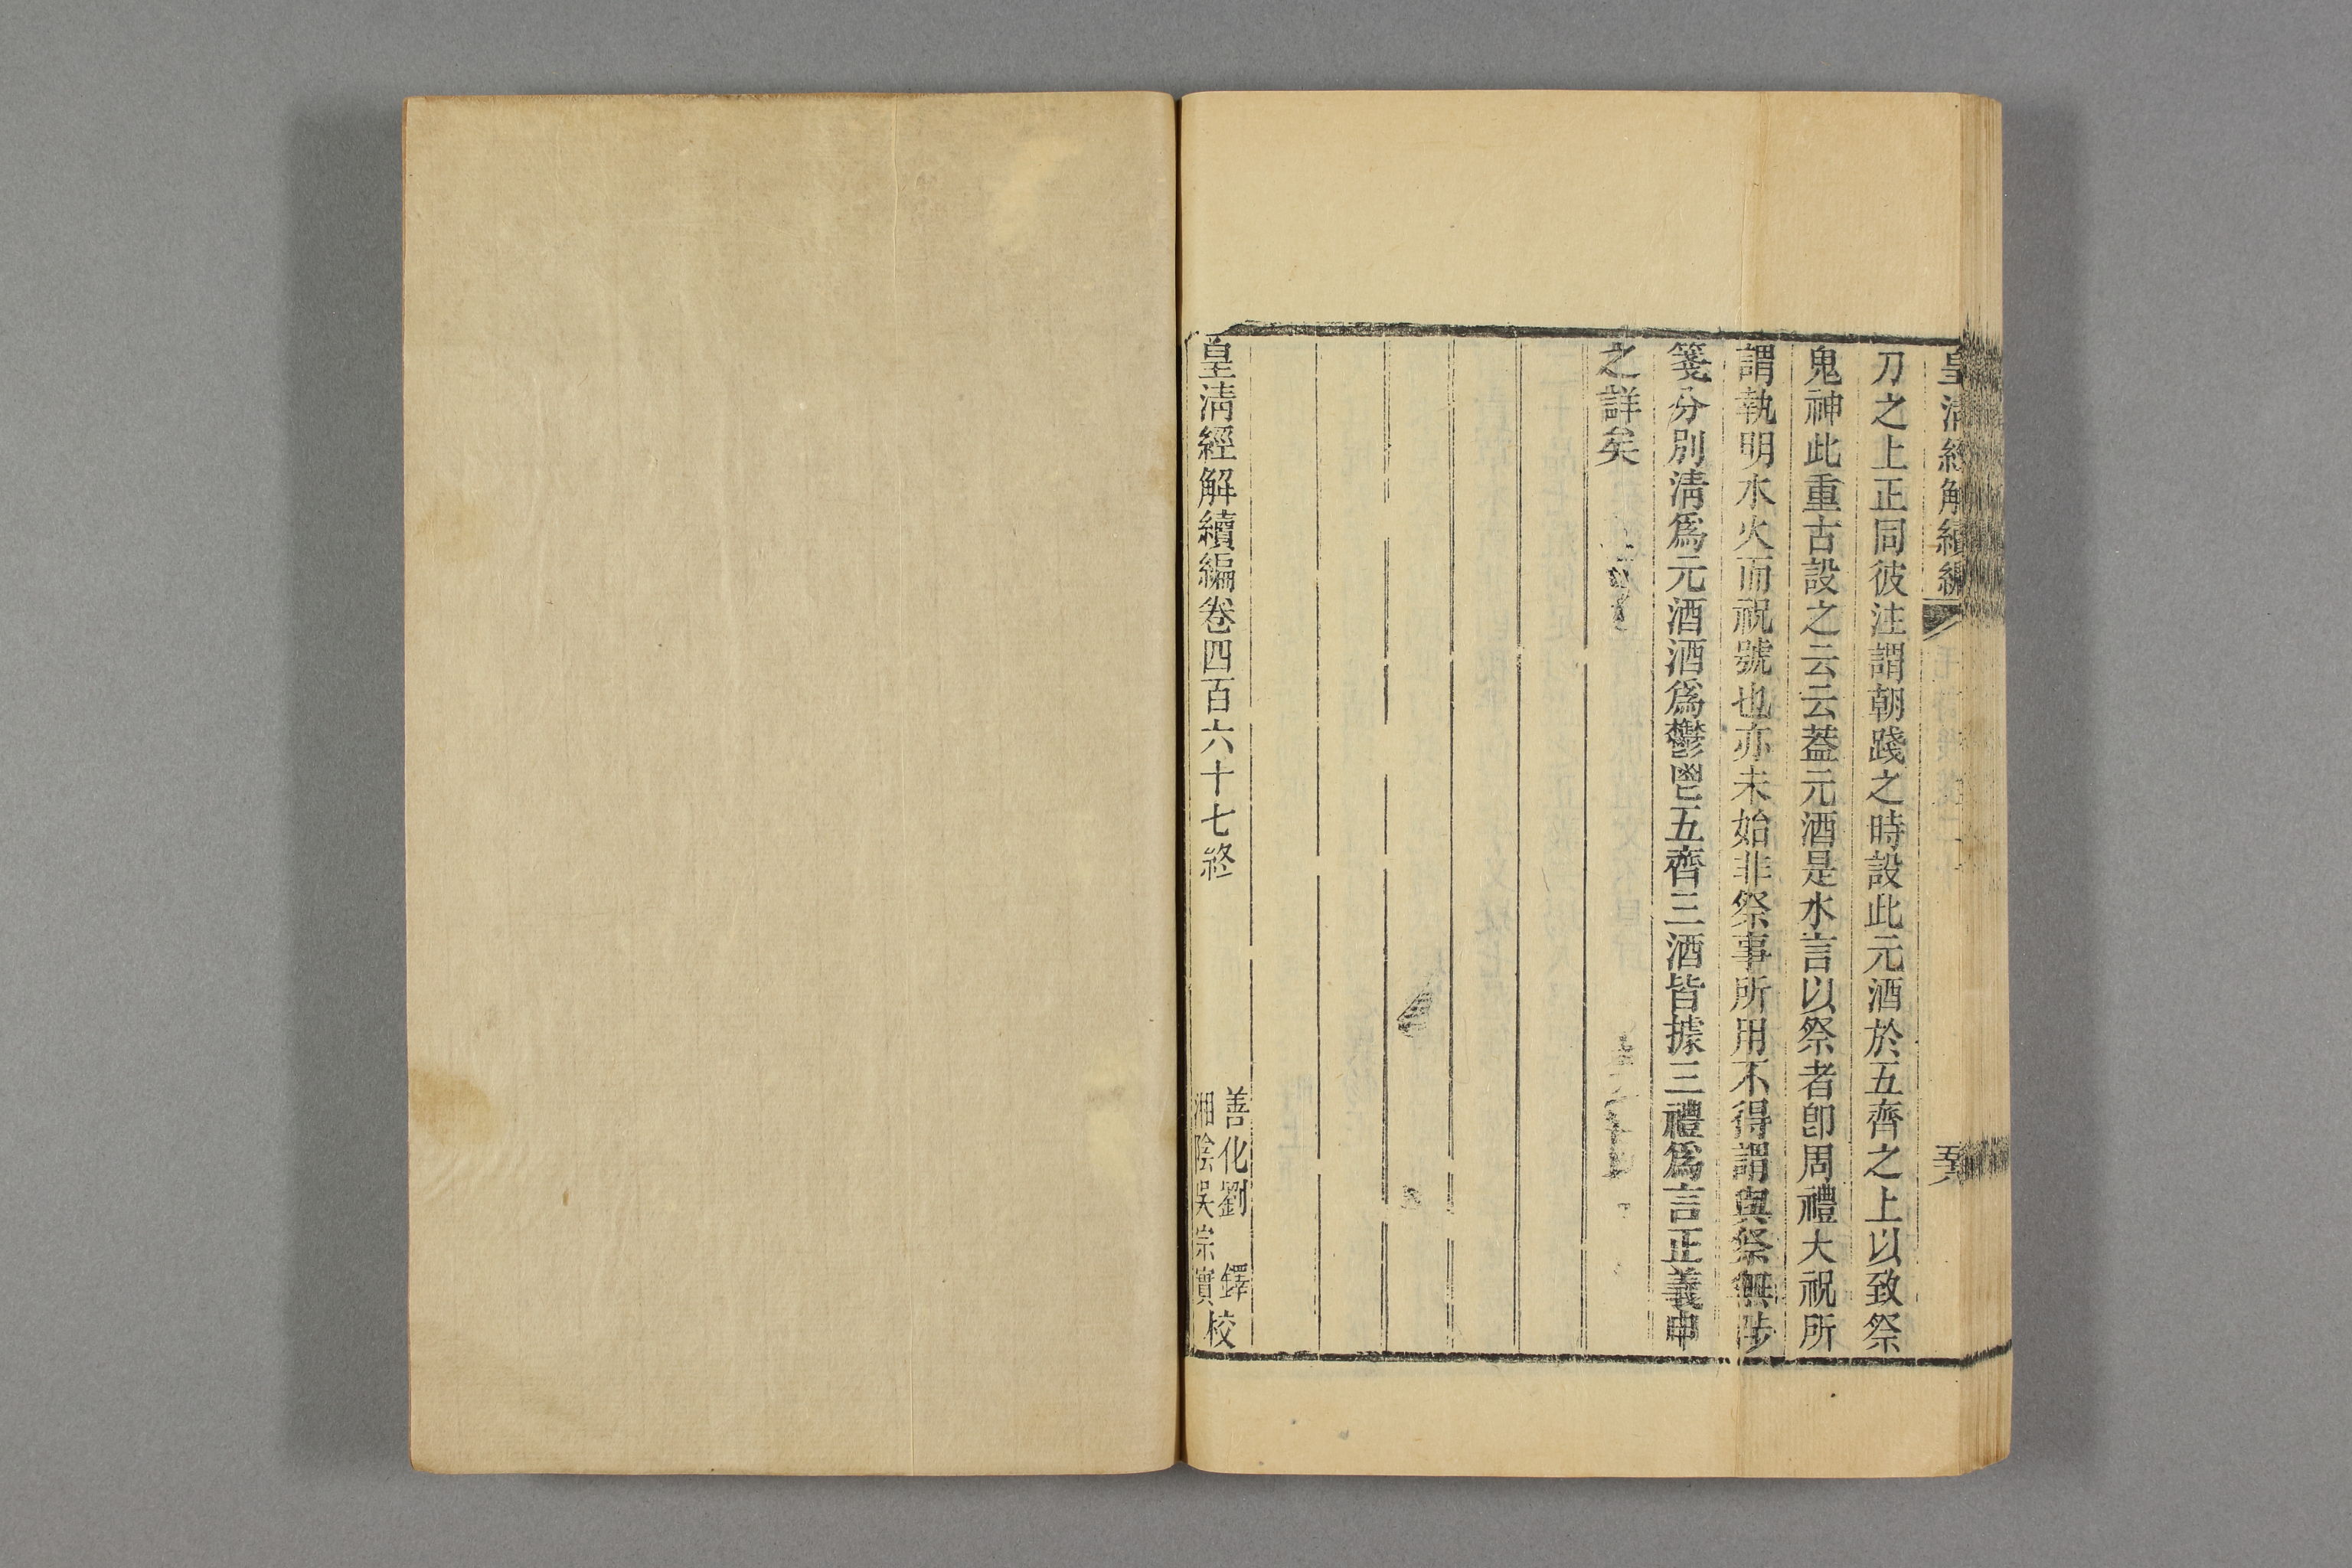 皇清經解續編
刀之上正同彼注謂朝踐之時設此元酒於五齊之上以致祭
鬼神此重古設之云云葢元酒是水言以祭者卽周禮大祝所
謂執明水火而祝號也亦未始非祭事所用不得謂與祭無涉
箋分別淸爲元酒酒爲鬱鬯五齊三酒皆據三禮爲言正義申
之詳矣
皇淸經解續編卷四百六十七終
善化劉鐸
湘陰吳宗實校